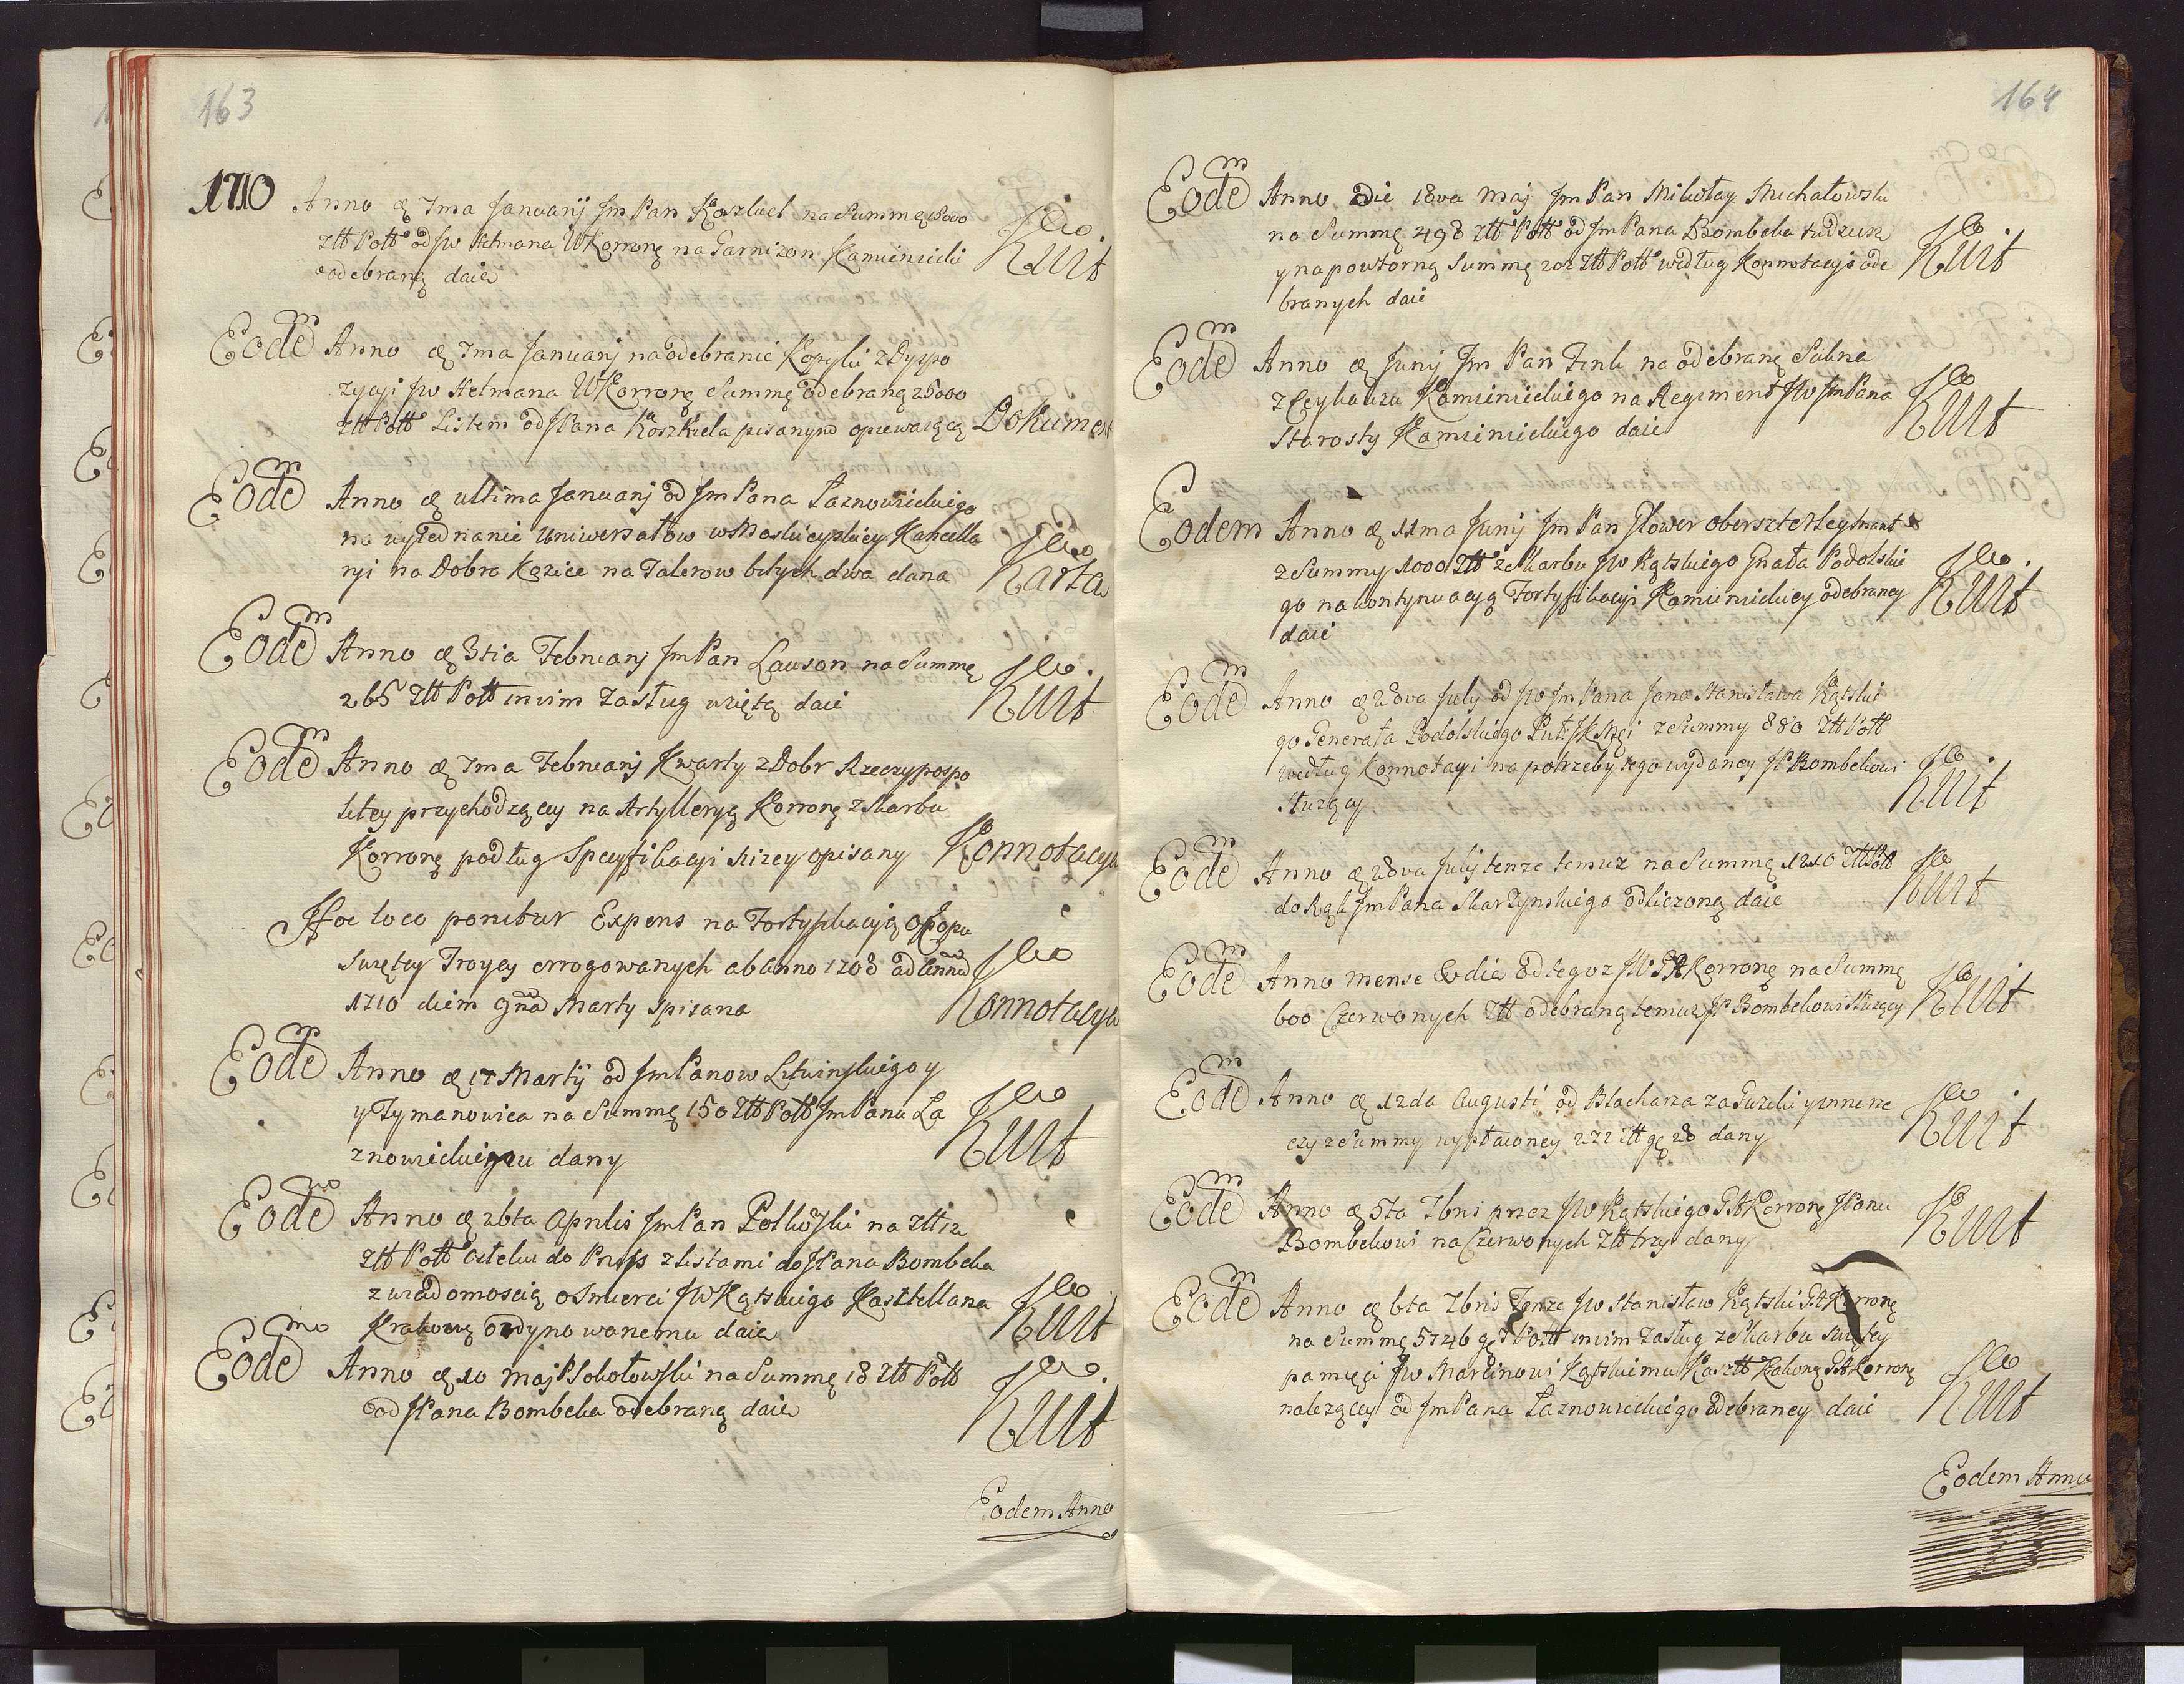 163
1710 Anno æ 7ma Januarij Jm Pan Koszkiel na Summę 18000
Złł Poll od Jw Hetmana WKorronę na Garnizon Kamieniecki
odebraną daie Jego Kwit
Eodem Anno æ 7ma Januarij na odebranie Kopylii z Dyspo
zycyi Jw Hetmana WKorronę Summę odebraną 25000
Złł Poll Listem od JPana Koszkiela pisanym opiewaiącą Dokument
Eodem Anno æ ultima Januarij od Jm Pana Łaznowickiego
na wyiednanie Uniwersałow w Moskiewskiey Kancella
ryi na Dobra Kozice na Talerow bitych dwa dana Jego Karta
Eodem Anno æ 3tia Februarij Jm Pan Lauson na Summę
265 Złł Poll in vim Zasług wziętą daie Jego Kwit
Eodem Anno æ 7ma Februarij Kwarty z Dobr Rzeczypospo
litey przychodzącey na Artylleryą Korronę z Skarbu
Korronę podług Specyfikacyi niżey opisany Konnotacya
Hoc loco ponitur Expens na Fortyfikacyią Okopu
Swiętey Troycy errogowanych ab Anno 1708 ad Annum
1710 diem 9na Marty spisana Jego Konnotacya
Eodem Anno æ 17 Martij od Jm Panow Litwinskiego y
y Tymanowica na Summę 150 Złł Poll Jm Panu Ła
znowickiemu dany Jego Kwit
Eodem Anno æ 26ta Aprilis Jm Pan Polkowski na Złł 12
Złł Poll do Prus z listami do JPana Bombeka
z wiadomoscią o Smierci JW Kątskiego Kasztellana
Krakowę ordynowanemu daie Jego Kwit
Eodem Anno æ 10 Maj P Sokołowski na Summę 18 Złł Poll
od JPana Bombeka odebraną daie Jego Kwit
Eodem Anno
164
Eodem Anno Die 18va Maj Jm Pan Mikołay Michałowski
na Summę 498 Złł Poll od Jm Pana Bombeka tudziesz
y na powtorną Summę 202 Złł Poll według Konnotacyi ode
branych daie Jego Kwit
Eodem Anno æ Junij Jm Pan Fink na odebranę Sukna
z Ceyhauzu Kamienieckiego na Regiment JW Jm Pana
Starosty Kamienieckiego daie Jego Kwit
Eodem Anno æ 11ma Junij Jm Pan Glower Obersztleytnant
z Summy 1000 Złł ze Skarbu JW Kątskiego Gnała Podolskie
go na kontynuacyą Fortyfikacyi Kamienieckiey odebraney
daie Jego Kwit
Eodem Anno æ 28va July od JW Jm Pana Jana Stanisława Kątskie
go Generała Podolskiego z Summy 880 Złł Poll
według Konnotacyi na potrzeby tego wydaney JP Bombekowi
służący Jego Kwit
Eodem Anno æ 28va Julij tenże temuz na Summę 1210 Złł Poll
do Rąk Jm Pana Skarżynskiego odliczoną daie Jego Kwit
Eodem Anno mense & die od tegoz JW GA Korronę na Summę
600 Czerwonych Złł odebraną temuz JP Bombekowi służący Jego Kwit
Eodem Anno æ 12da Augusti od Blacharza za Guziki y inne rze
czy z Summy wypłaconey 272 Złł gę 28 dany Jego Kwit
Eodem Anno æ 5ta 7bris przez JW Kątskiego GA Korronę JPanu
Bombekowi na Czerwonych Złł trzy dany Kwit
Eodem Anno æ 6ta 7bris Tenże JW Stanisław Kątski GA Korronę
na Summę 5746 gę 7 Poll in vim Zasług ze Skarbu Swiętey
pamięci JW Marcinowi Kątskiemu Kasztł Krakowę GA Korronę
należącey od Jm Pana Łaznowickiego odebraney daie Jego Kwit
Eodem Anno